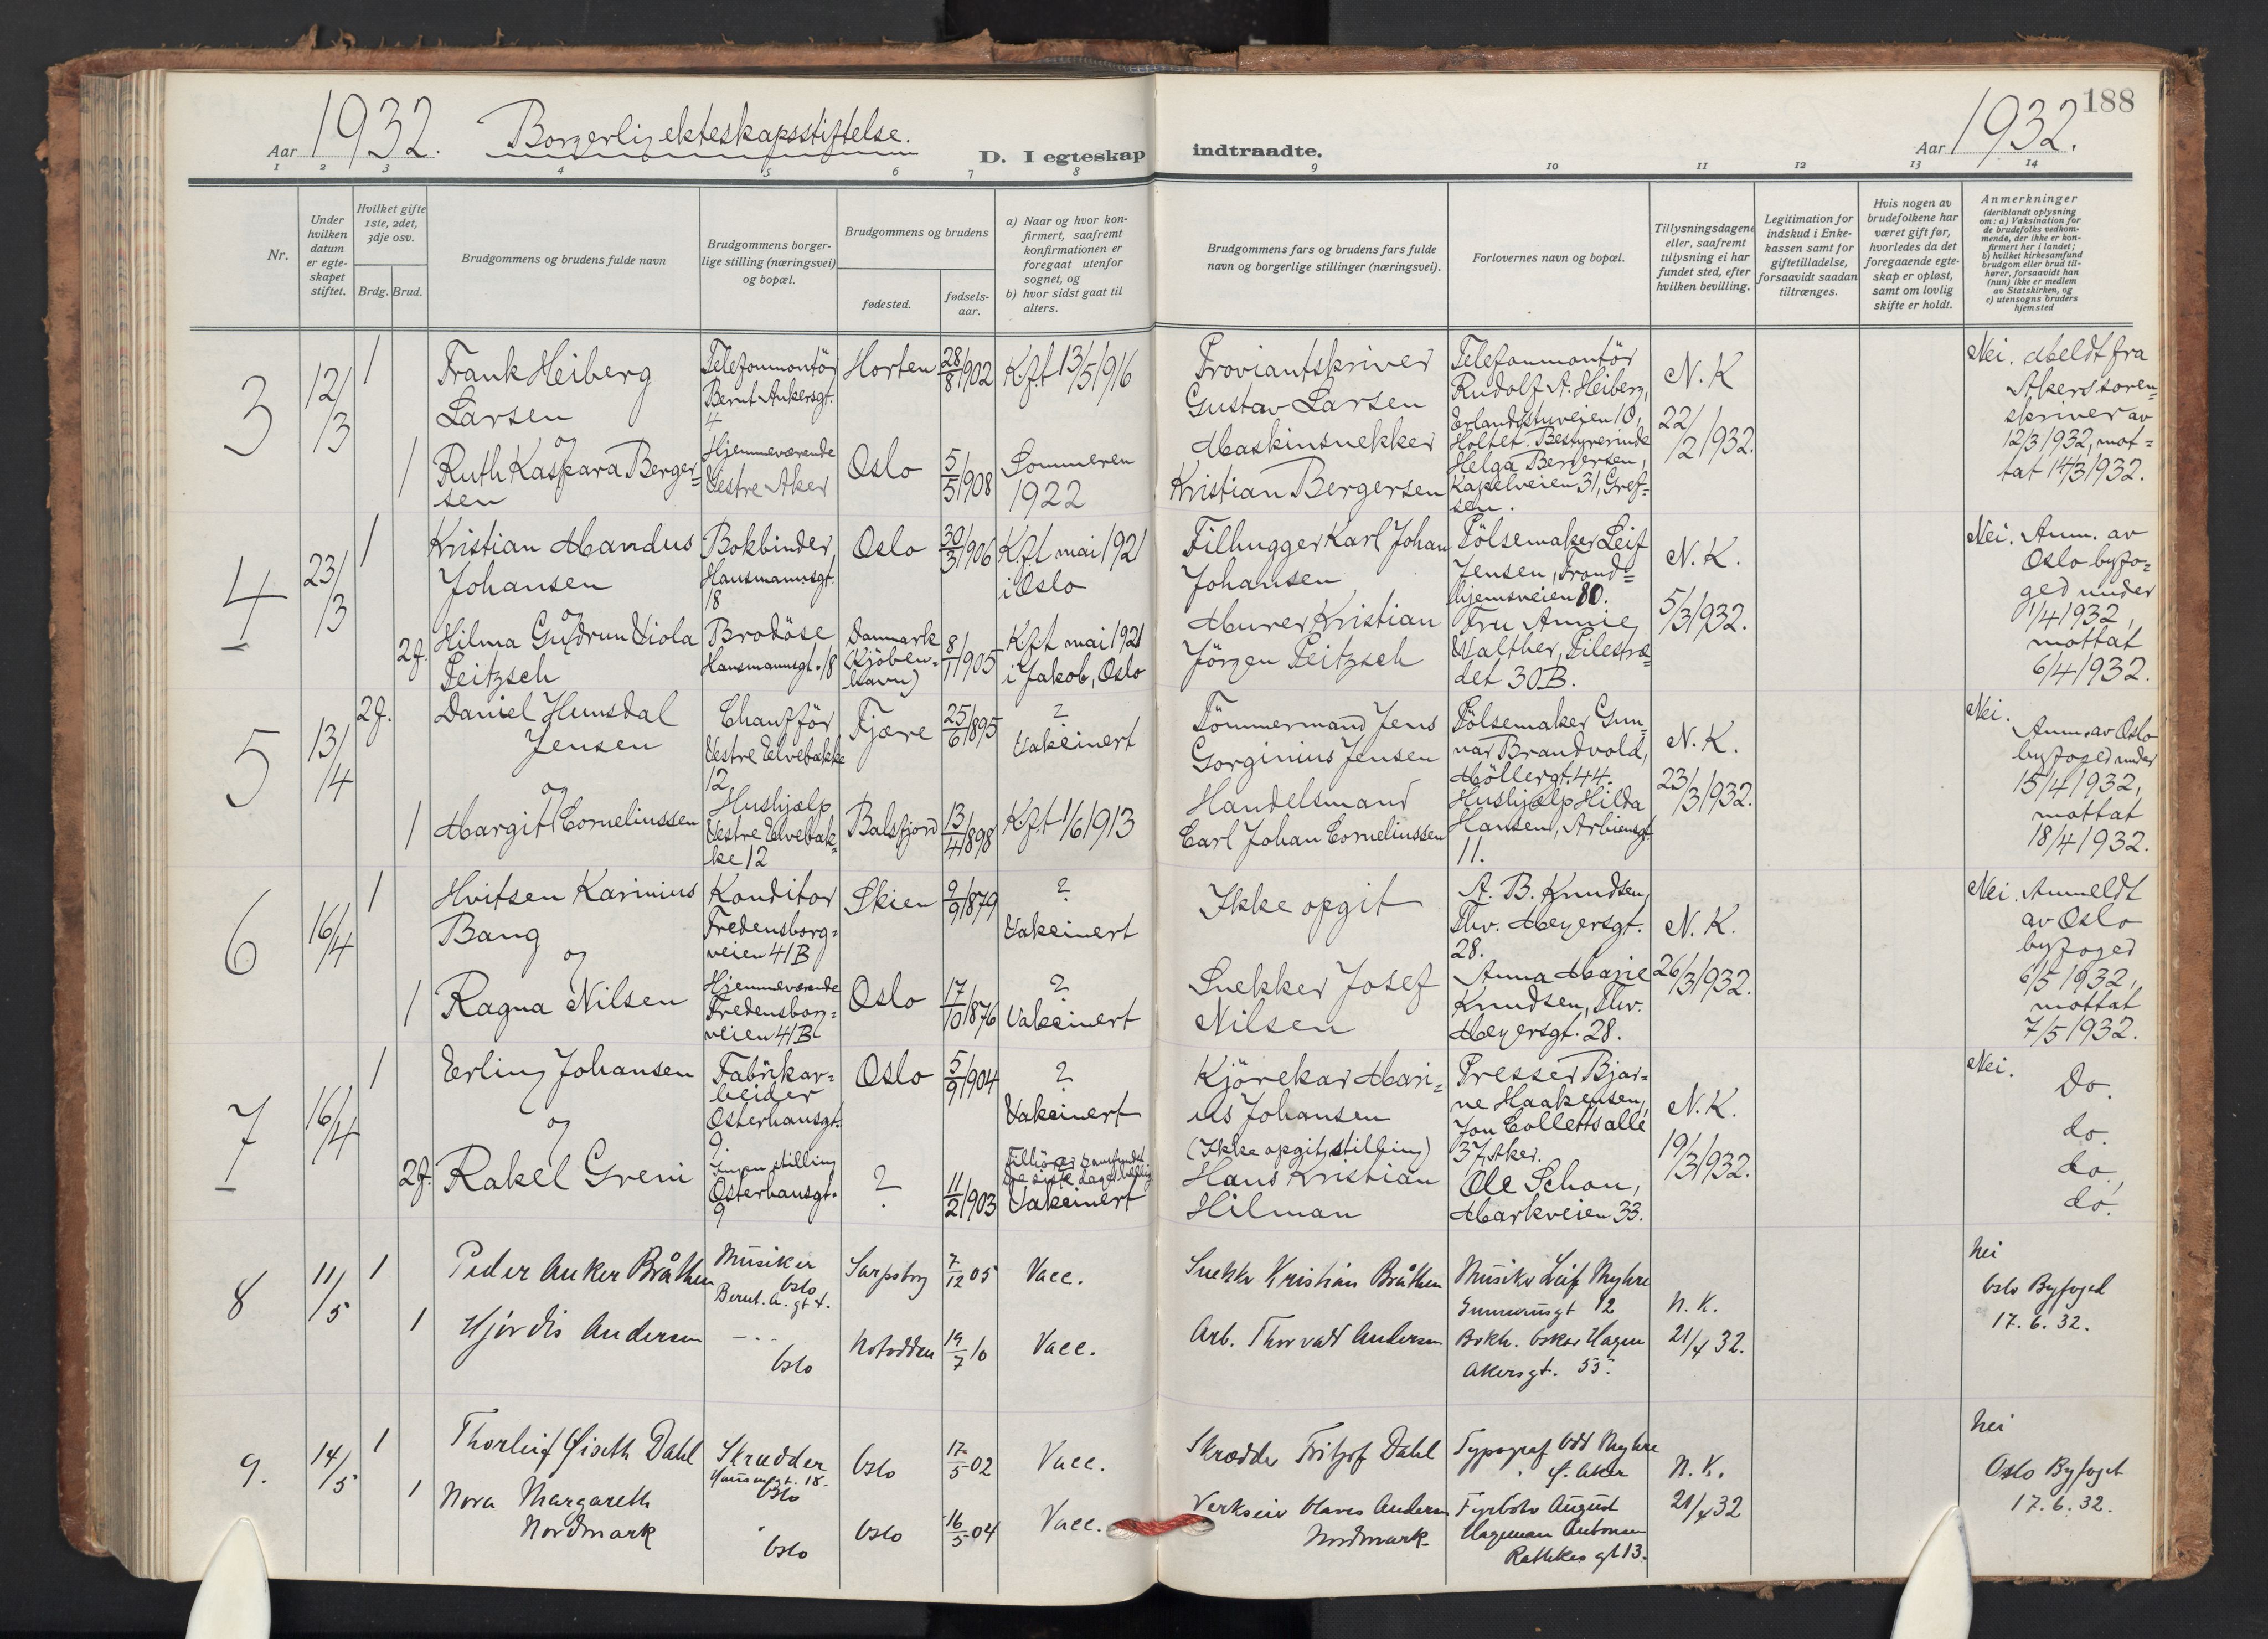 188
Aar 1932. Borgerlig ekteskapsstiftelse. D. I egteskap indtraadte. Aar 1932.
1 2 3 4 5 6 7 8 9 10 11 12 13 14
Nr.
Under
hvilken
datum
er egte-
skapet
stiftet.
Hvilket gifte
1ste, 2det,
3dje osv.
Brdg. Brud.
Brudgommens og brudens fulde navn
Brudgommens borger-
lige stilling (næringsvei)
og bopæl.
Brudgommens og brudens
fødested.
fødsels-
aar.
a) Naar og hvor kon-
firmert, saafremt
konfirmationen er
foregaat utenfor
sognet, og
b) hvor sidst gaat til
alters.
Brudgommens fars og brudens fars fulde
navn og borgerlige stillinger (næringsvei).
Forlovernes navn og bopæl.
Tillysningsdagene
eller, saafremt
tillysning ei har
fundet sted, efter
hvilken bevilling.
Legitimation for
indskud i Enke-
kassen samt for
giftetilladelse,
forsaavidt saadan
tiltrænges.
Hvis nogen av
brudefolkene har
været gift før,
hvorledes da det
foregaaende egte-
skap er opløst,
samt om lovlig
skifte er holdt.
Anmerkninger
(deriblandt oplysning
om: a) Vaksination for
de brudefolks vedkom-
mende, der ikke er kon-
firmert her i landet;
b) hvilket kirkesamfund
brudgom eller brud til-
hører, forsaavidt han
(hun) ikke er medlem
av Statskirken, og
c) utensogns bruders
hjemsted
3
12/3
1
Frank Heiberg
Larsen
og
Telefonmontör
Bernt Ankersgt.
4
Horten
28/8 1902
Kft 13/5 1916
Proviantskriver
Gustav Larsen
Telefonmontör
Rudolf A. Heiberg,
Erlandstuveien 10,
Holtet. Bestyrerinde
Helga Bergersen,
Kapelveien 31, Gref=
sen.
N. K
22/2 1932.
Nei. Meldt fra
Aker soren=
skriver av
12/3 1932, mot=
tat 14/3 1932.
1
Ruth Kaspara Berger=
sen
Hjemmeværende
Vestre Aker
Oslo
5/5 1908
Sommeren
1922
Maskinsnekker
Kristian Bergersen
4
23/3
1
Kristian Mandus
Johansen
og
Bokbinder,
Hausmannsgt.
18
Oslo
30/3 1906
Kft mai 1921
i Oslo
Filhugger Karl Johan
Johansen
Pölsemaker Leif
Jensen, Trond=
hjemsveien 80.
Fru Annie
Walther, Pilestræ=
det 30B.
N. K.
5/3 1932.
Nei. Anm. av
Oslo byfo=
ged under
1/4 1932,
mottat
6/4 1932.
2g.
Hilma Gudrun Viola
Peitzsch
Brodöse
Hausmannsgt. 18
Danmark
(Kjöben=
havn)
8/1 1905
Kft mai 1921
i Jakob, Oslo
Murer Kristian
Jörgen Peitzsch
5
13/4
2g.
Daniel Hunsdal
Jensen
og
Chaufför
Vestre Elvebakke
12
Fjære
25/6 1895
?
Vakcinert
Tömmermand Jens
Gorginius Jensen
Pölsemaker Gun=
nar Brandvold,
Möllergt. 44.
Hushjælp Hilda
Hansen, Arbiensgt.
11.
N. K.
23/3 1932.
Nei.
Anm. av Oslo
byfoged under
15/4 1932,
mottat
18/4 1932.
1
Margit Corneliussen
Hushjælp
Vestre Elvebak=
ke 12
Balsfjord
13/4 1898
Kft 1/6 1913
Handelsmand
Carl Johan Corneliussen
6
16/4
1
Hvitsen Karinius
Bang
og
Konditor
Fredensborg=
veien 41B
Skien
9/9 1879
?
Vakcinert
Ikke opgit
A. B. Knudsen,
Thv. Meyersgt.
28.
Anna Marie
Knudsen, Thv.
Meyersgt. 28.
N. K.
26/3 1932.
Nei. Anmeldt
av Oslo
byfoged
6/5 1932,
mottat
7/5 1932.
1
Ragna Nilsen
Hjemmeværende
Fredensborg=
veien 41B
Oslo
17/10 1876
?
Vakcinert
Snekker Josef
Nilsen
7
16/4
1
Erling Johansen
og
Fabrikar=
beider
Osterhausgt.
9.
Oslo
5/9 1904
?
Vakcinert
Kjörekar Mari=
us Johansen
Presser Bjar=
ne Haakensen,
Jon Colletts alle
37, Aker.
Ole Schou,
Markveien 33.
N. K.
19/3 1932.
Nei.
Do.
do.
do.
do.
2g.
Rakel Greni
Ingen stilling
Osterhausgt.
9
?
11/2 1903
Tilhörer samfundet
De siste dages hellig
Vakcinert
(Ikke opgit stilling)
Hans Kristian
Hilman
8
11/5
1
Peder Anker Bråthen
Musiker
Oslo
Bernt. A. gt 4.
Sarpsborg
7/12 05
Vacc.
Snekker Kristian Bråthen
Musiker Leif Myhre
12
Bokh. Oskar Hagen
Akersgt. 55.
N. K.
21/4 32.
Nei
Oslo Byfoged
17. 6. 32.
1
Hjördis Andersen
Oslo
Notodden
19/7 10
Vacc.
Arb. Thorvald Andersen
9.
14/5
1
Thorleif Øiseth Dahl
Skrædder
Hausmgt. 18.
Oslo
Oslo
17/5 02
Vacc.
Skrædder Fritjof Dahl
Typograf Odd Myhre
Ø. Aker
Fyrböter August
Hageman Antonsen
Rathkes gt 13.
N. K.
21/4 32
Nei
Oslo Byfoget
17. 6. 32.
1
Nora Margareth
Nordmark
Oslo
Oslo
16/5 04
Vacc.
Verkseier Olaves Andersen
Nordmark